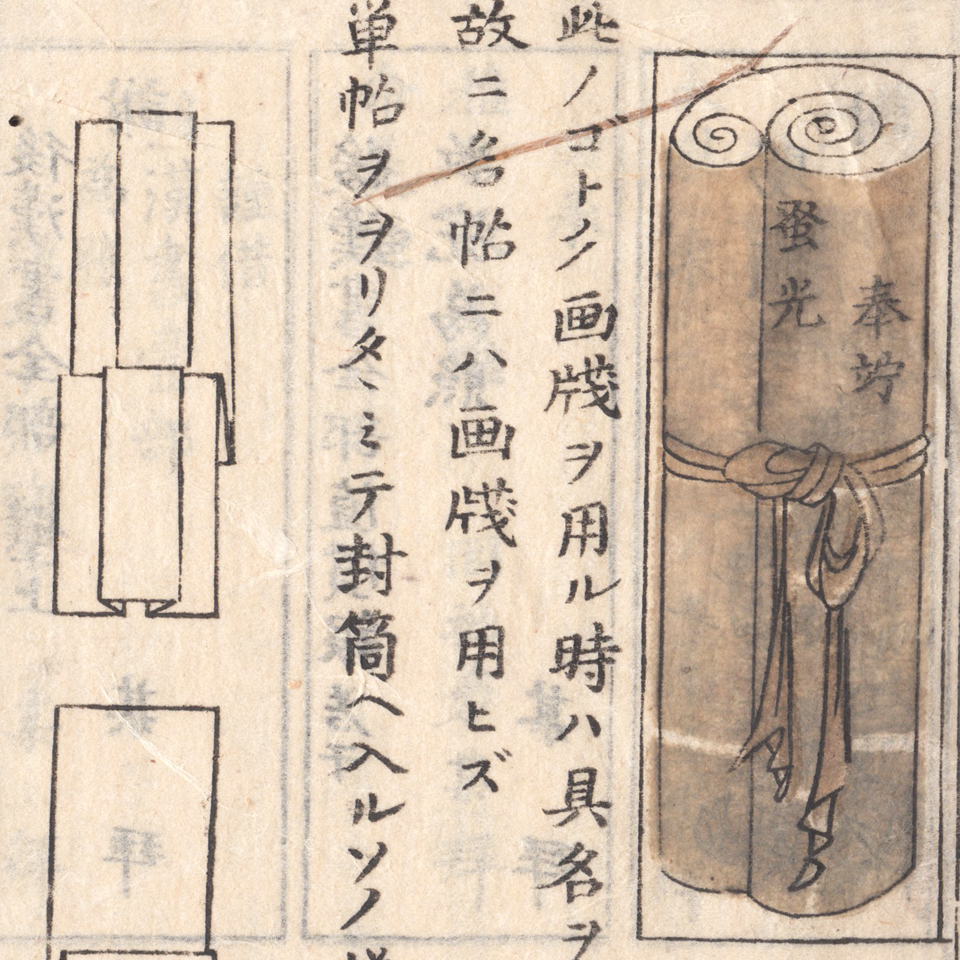 奉竚
蛩光
此ノゴトノ画牋ヲ用ル時ハ具名ヲ
故ニ名帖ニハ画牋ヲ用ヒズ
単帖ヲヲリタヽミテ封筒ヘ入ルソノ